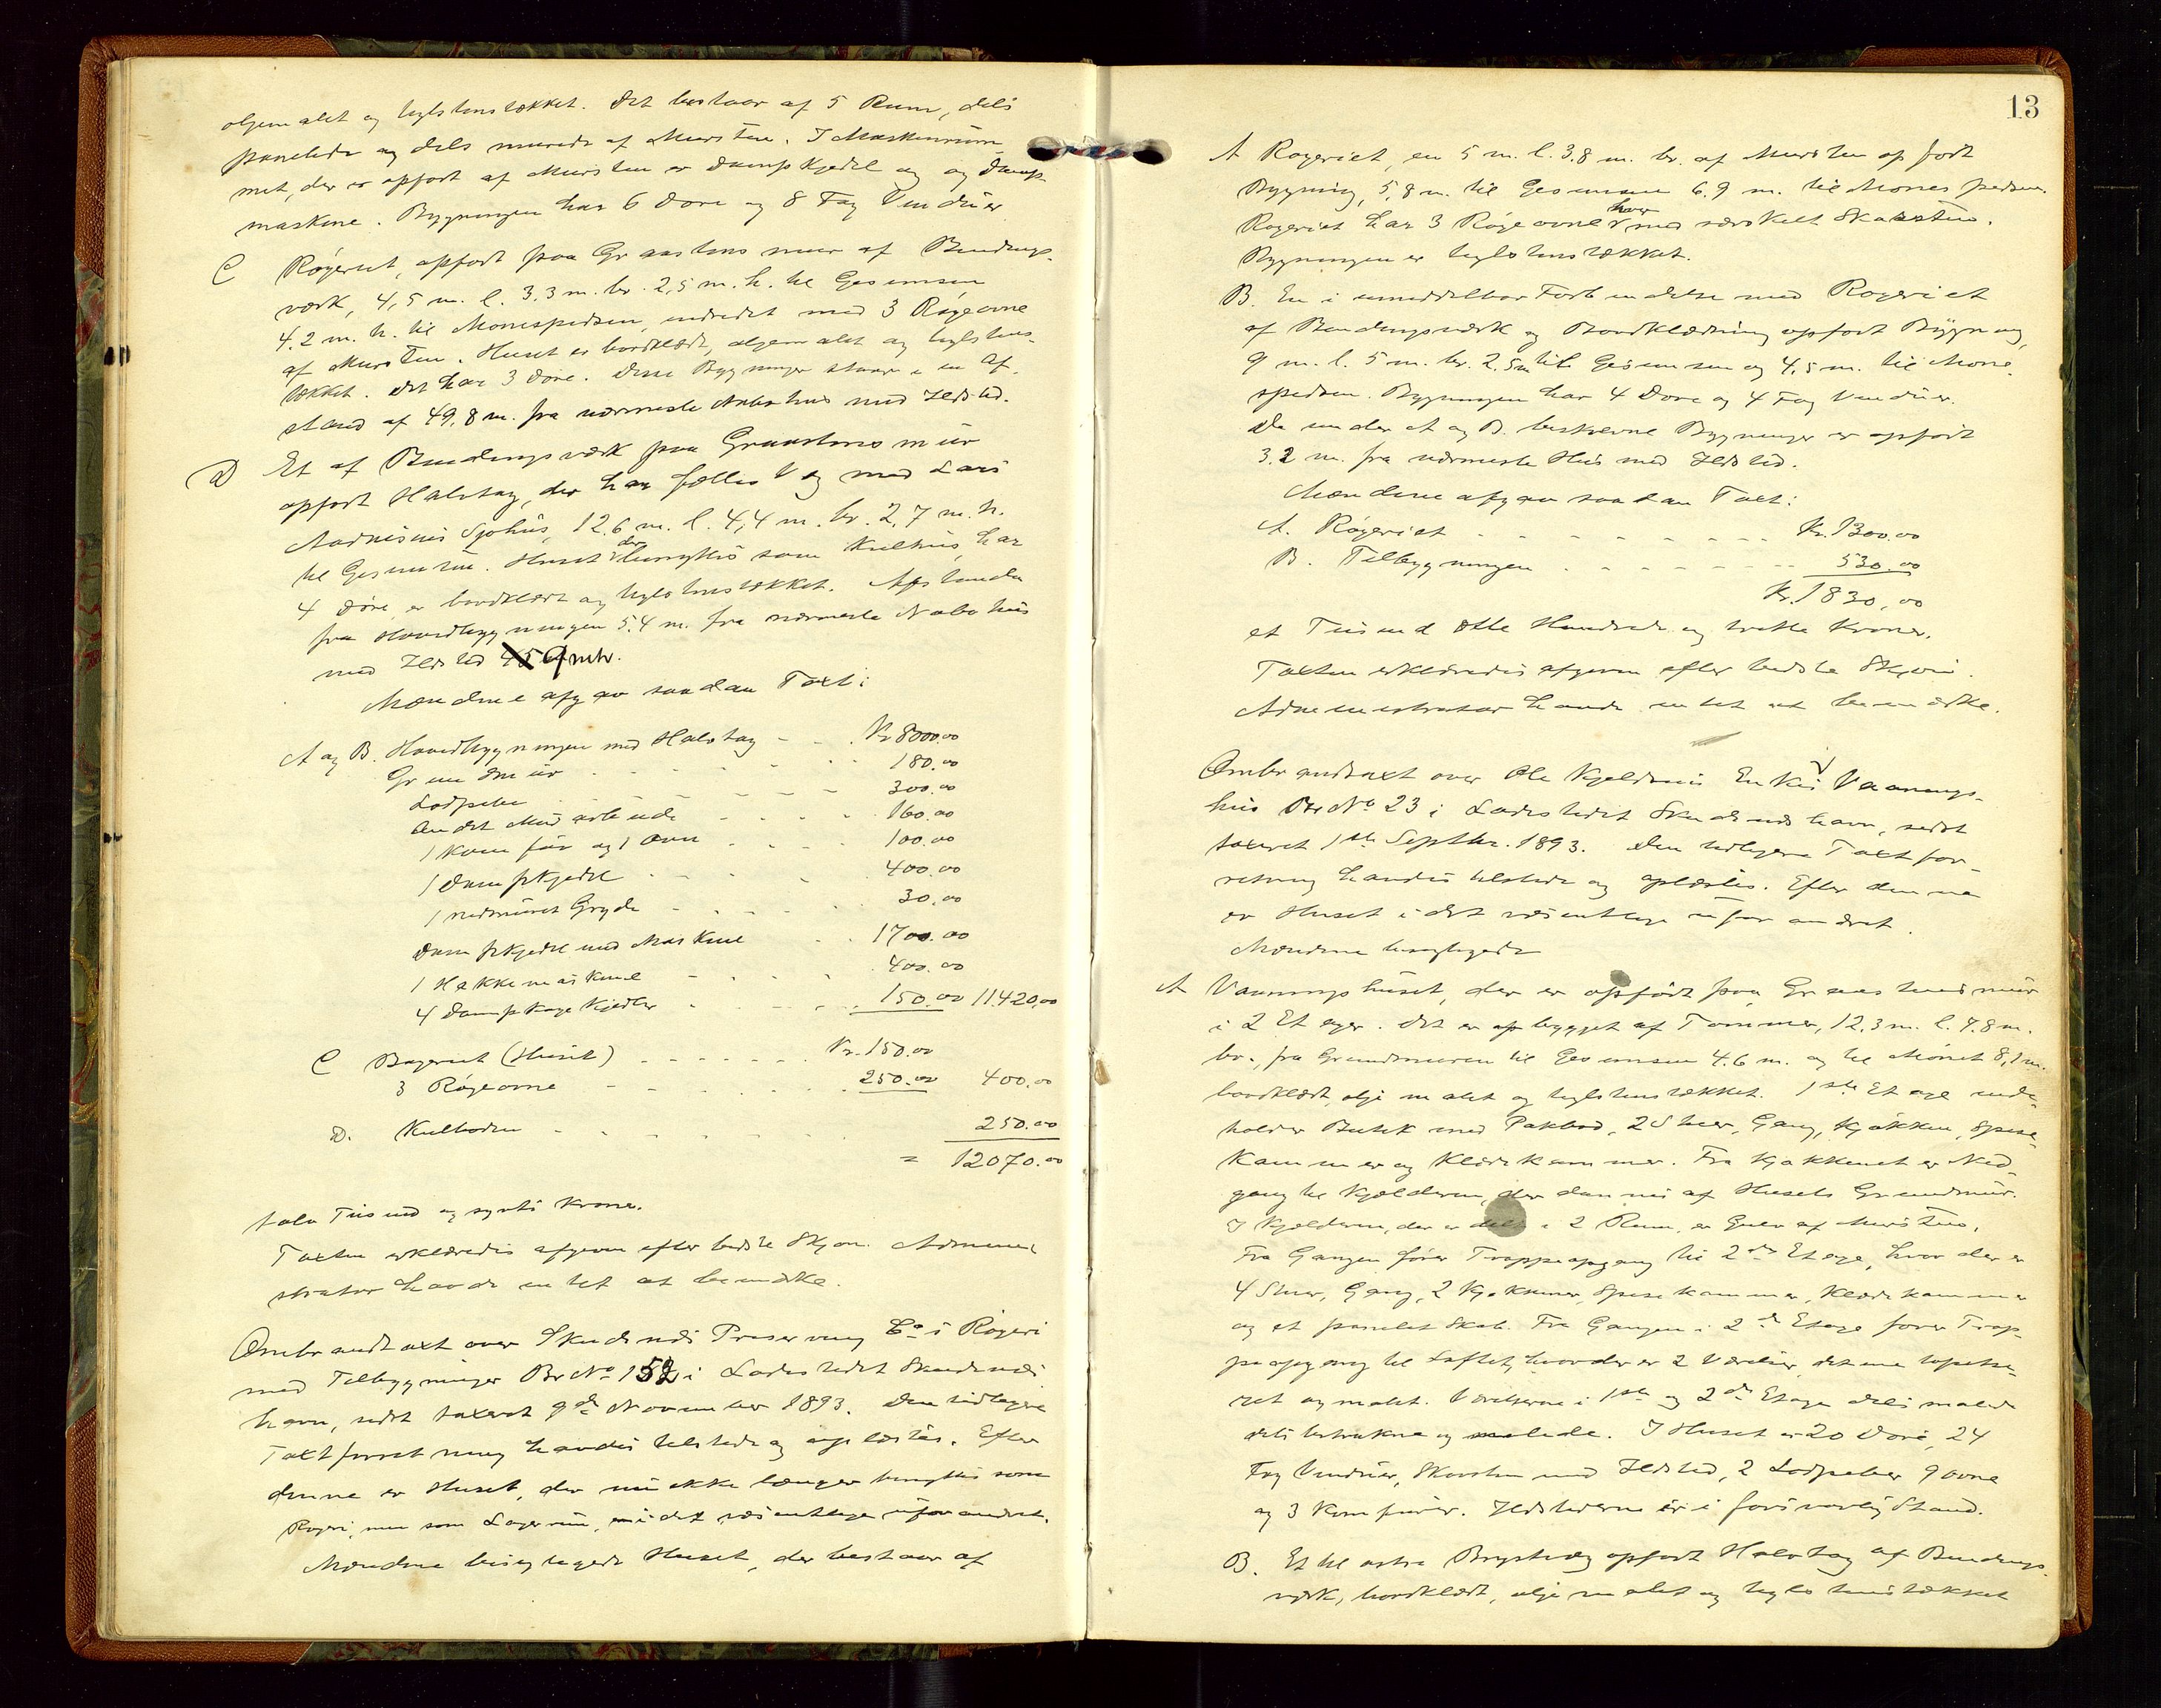 oljemalet og teglstenstækket. Det bestaar af 5 Rum, dels
panelede og dels murede af Mursten. I Maskinrum-
met, der er opført af Mursten er Dampkjedel og og Damp-
maskine. Bygningen har 6 Døre og 8 Fag Vinduer.
C Røgeriet, opført paa Graastens mur af Bindings-
værk, 4,5 m. l. 3,3 m. br. 2,5 m. h. til Gesimsen
4.2 m. h. til Mønespidsen, indredet med 3 Røgeovne
af Mursten. Huset er bordklædt, oljemalet og teglstens-
tækket. Det har 3 Døre. Disse Bygninger staar i en Af-
stand af 49,8 m. fra nærmeste Nabohus med Ildsted.
D Et af Bindingsværk paa Graastens mur
opført Halvtag, der har fælles Væg med Lars
Aadnesens Sjøhus, 12,6 m. l. 4,4 m. br. 2,7 m. h.
til Gesimsen. Huset der benyttes som Kulhus, har
4 Døre, er bordklædt og teglstenstækket. Afstanden
fra Hovedbygningen 5,4 m. fra nærmeste Nabohus
med Ildsted 59 mtr.
Mændene afgav saadan Taxt:
A og B. Hovedbygningen med Halvtag - - . Kr 8000.00
Grundmur . - - - - . . 180.00
Lodpibe . - - - - - 300.00
Andet Murarbeide - - - . . 160.00
1 Komfur og 1 Ovn . - . . 100.00
1 Dampkjedel - - . . 400.00
1 nedmuret Gryde - - . . 30.00
Dampkjedel med Maskine . . 1700.00
1 Hakkemaskine - . . . 400.00
4 Dampkoge Kjedler . . . 150.00 11420,00
C Røgeriet (Huset) - - - - - - - Kr. 150.00
3 Røgeovne - - - . . 250.00 400.00
D. Kulboden - - - - - - 250.00
= 12070.00
tolv Tusind og sytti Kroner.
Taxten erklæredes afgiven efter bedste Skjøn. Admini-
strator havde intet at bemærke.
Ombrandtaxt over Skudenes Preserving Co's Røgeri
med Tilbygninger Br No 152 i Ladestedet Skudenes-
havn, sidst taxeret 9de November 1893. Den tidligere
Taxtforretning havdes tilstede og oplæstes. Efter
denne er Huset, der nu ikke længer benyttes som
Røgeri, men som Lagerrum, i det væsentlige uforandret.
Mændene besigtigede Huset, der bestaar af
13
A Røgeriet, en 5 m. l. 3.8 m. br. af Mursten opført
Bygning, 5,8 m. til Gesimsen 6.9 m. til Mønespidsen.
Røgeriet har 3 Røgeovne hver med særskilt Skorsten.
Bygningen er teglstenstækket.
B. En i umiddelbar Forbindelse med Røgeriet
af Bindingsværk og Bordklædning opført Bygning,
9 m. l. 5 m. br. 2.5 m til Gesimsen og 4,5 m. til Møne-
spidsen. Bygningen har 4 Døre og 4 Fag Vinduer.
De under A og B. beskrevne Bygninger er opført
3.2 m. fra nærmeste Hus med Ildsted.
Mændene afgav saadan Taxt:
A. Røgeriet - - - - - - - - - Kr. 1300.00
B. Tilbygningen . - - - - - - 530.00
Kr. 1830,00
et Tusind otte Hundrede og tretti Kroner.
Taxten erklæredes afgiven efter bedste Skjøn.
Administrator havde intet at bemærke.
Ombrandtaxt over Ole Kjeldsens Enkes Vaanings-
hus Br No 23 i Ladestedet Skudeneshavn, sidst
taxeret 1ste Septbr. 1893. Den tidligere Taxtfor-
retning havdes tilstede og oplæstes. Efter denne
er Huset i det væsentlige uforandret.
Mændene besigtigede
A Vaaningshuset, der er opført paa Graastensmur
i 2 Etager. Det er opbygget af Tømmer, 12,3 m. l. 7.8 m.
br., fra Grundmuren til Gesimsen 4.6 m. og til Mønet 8,1 m.
bordklædt, oljemalet og teglstenstækket. 1ste Etage inde-
holder Butik med Pakbod, 2 Stuer, Gang, Kjøkken, Spise-
kammer og Klædekammer. Fra Kjøkkenet er Ned-
gang til Kjælderen, der dannes af Husets Grundmur.
I Kjælderen, der er delt i 2 Rum, er Gulv af Mursten.
Fra Gangen fører Trappeopgang til 2den Etage, hvor der er
4 Stuer, Gang, 2 Kjøkkener, Spisekammer, Klædekammer
og et panelet Skab. Fra Gangen i 2den Etage fører Trap-
peopgang til Loftet, hvor der er 2 Værelser, det ene tapetse-
ret og malet. Værelserne i 1ste og 2den Etage dels malede
dels betrukne og malede. I Huset er 20 Døre, 24
Fag Vinduer, Skorsten med Ildsted, 2 Lodpiber 9 ovne
og 3 Komfurer. Ildstederne er i forsvarlig Stand.
B. Et til østre Brystvæg opført Halvtag af Bindings-
værk, bordklædt, oljemalet og teglstenstækket